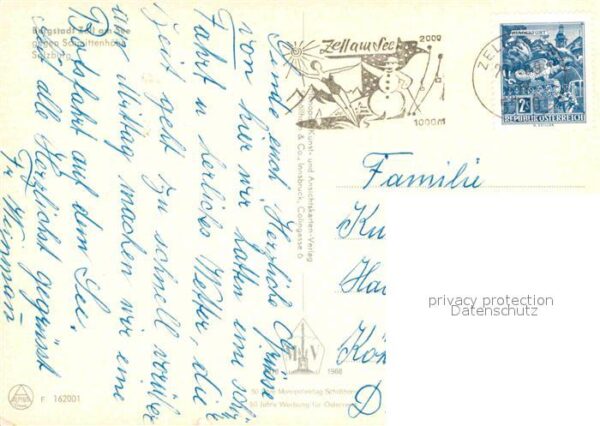 Bergstadt Zell am See
gegen Schmittenhöhe
Salzburg
Sende euch Herzliche Grüsse
von hier wir hatten eine schöne
Fahrt u herliches Wetter, die
Zeit geht zu schnell vorüber
am Mittag machen wir eine
Bootsfahrt auf dem See.
alle Herzlichst gegrüsst
Fr Weinman
Zell am See
2000
1000m
ZELL
REPUBLIK ÖSTERREICH
Kunst- und Ansichtskarten-Verlag
& Co., Innsbruck, Colingasse 6
Familie
Ku
Ha
Kö
D
privacy protection
Datenschutz
M V
1988
50 Jahre Werbung für Österreich
F 162001